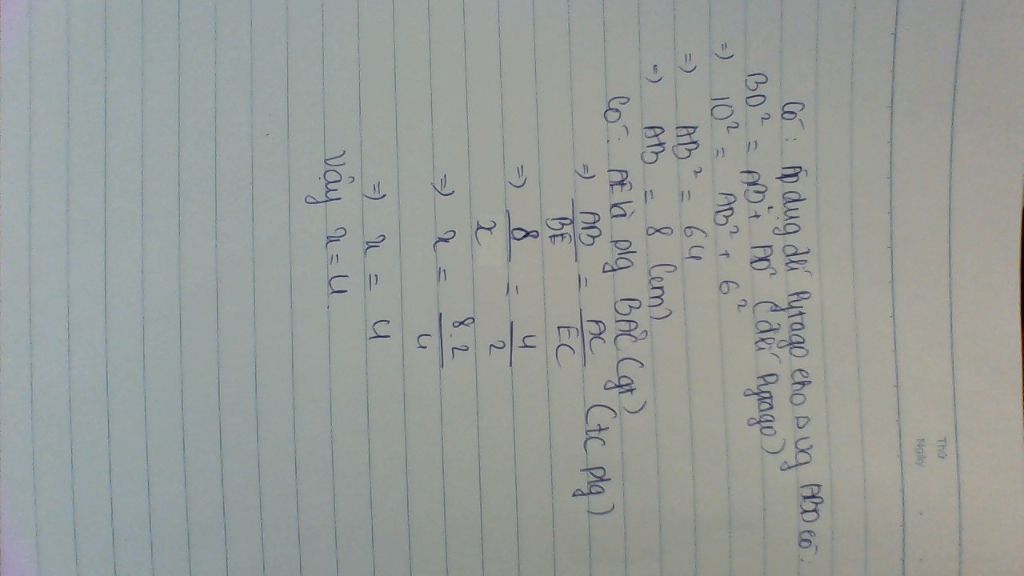 Thứ
Ngày
Có: Áp dụng đlí Pytago cho Δ vg ABD có:
BD² = AB² + AD² (đlí Pytago)
=) 10² = AB² + 6²
=) AB² = 64
=) AB = 8 (cm)
Có: AE là plg BAC (gt)
=) AB/BE = AC/EC (tc plg)
=) 8/x = 4/2
=) x = 8.2/4
=) x = 4
Vậy x = 4